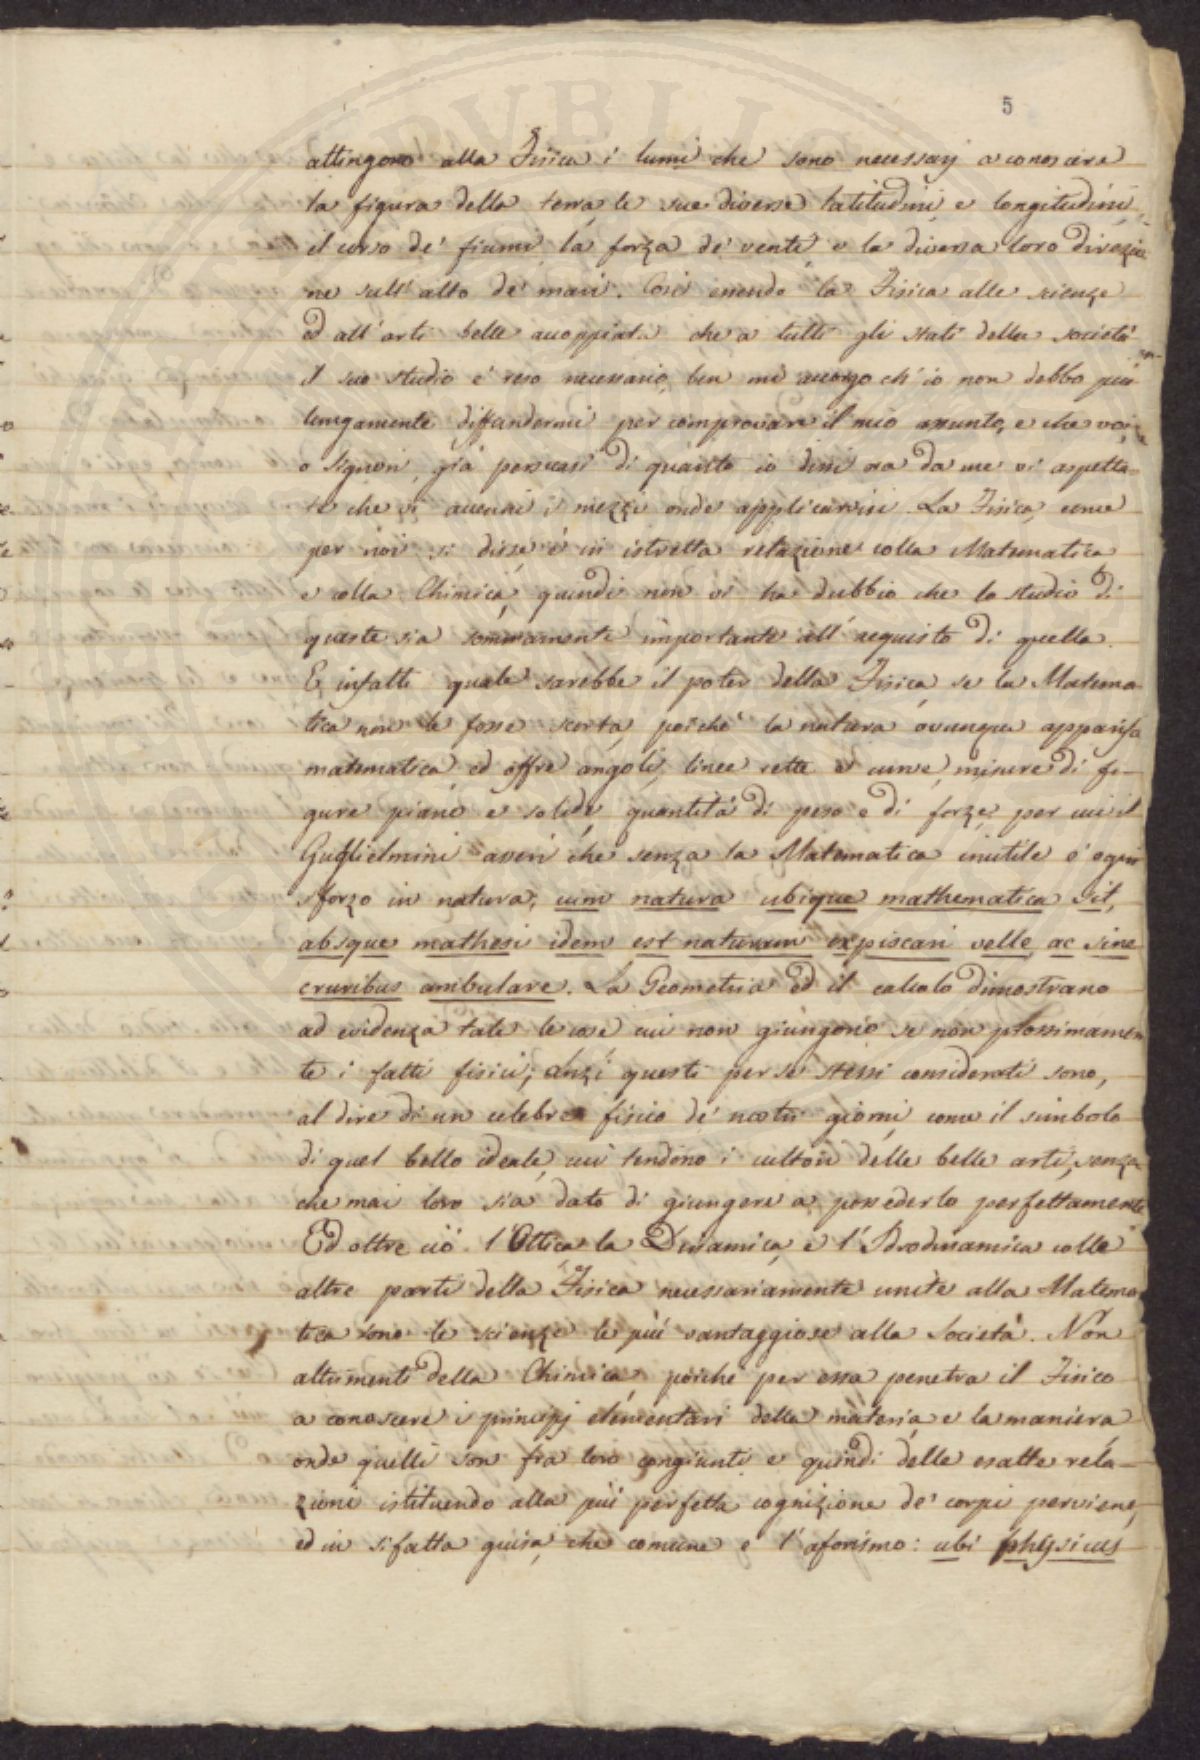 5
attingono alla Fisica i lumi che sono necessarj a conoscere
la figura della terra le sue diverse latitudini e longitudini,
il corso de' fiumi, la forza de' venti, e la diversa loro direzio
ne sull'alto de' mari. Così essendo la Fisica alle scienze
ed all'arti belle accoppiata che a tutti gli stati della società
il suo studio è reso necessario, ben mi accorgo ch'io non debbo più
lungamente diffondermi per comprovare il mio assunto, e che voi,
o Signori, già persuasi di quanto io dissi ora da me vi aspetta-
te che vi accenni i mezzi onde applicarvisi. La Fisica, come
per noi si disse, è in istretta relazione colla Matematica
e colla Chimica, quindi non vi ha dubbio che lo studio di
queste sia sommamente importante all'acquisto di quella.
E infatti quale sarebbe il poter della Fisica, se la Matema
tica non le fosse scorta, poichè la natura ovunque apparisce
matematica, ed offre angoli, linee rette e curve, misure di fi-
gure piane e solide, quantità di peso e di forze, per cui il
Guglielmini averì che senza la Matematica inutile è ogni
sforzo in natura; cum natura ubique mathematica sit,
absque mathesi idem est naturam expiscari velle, ac sine
cruribus ambulare. La Geometria ed il calcolo dimostrano
ad evidenza tali le cose cui non giungono se non prossimamen
te i fatti fisici; anzi questi per se stessi considerati sono,
al dire di un celebre fisico de' nostri giorni, come il simbolo
di quel bello ideale, cui tendono i cultori delle belle arti, senza
che mai loro sia dato di giungere a possederlo perfettamente
Ed oltre ciò l'Ottica, la Dinamica, e l'Idrodinamica colle
altre parti della Fisica necessariamente unite alla Matema
tica sono le scienze le più vantaggiose alla Società. Non
altrimenti della Chimica, poichè per essa penetra il Fisico
a conoscere i principj elementari della materia, e la maniera
onde quelli son fra loro congiunti e quindi delle esatte rela-
zioni istituendo alla più perfetta cognizione de' corpi perviene,
ed in sifatta guisa, che comune e l'aforismo: ubi physicus